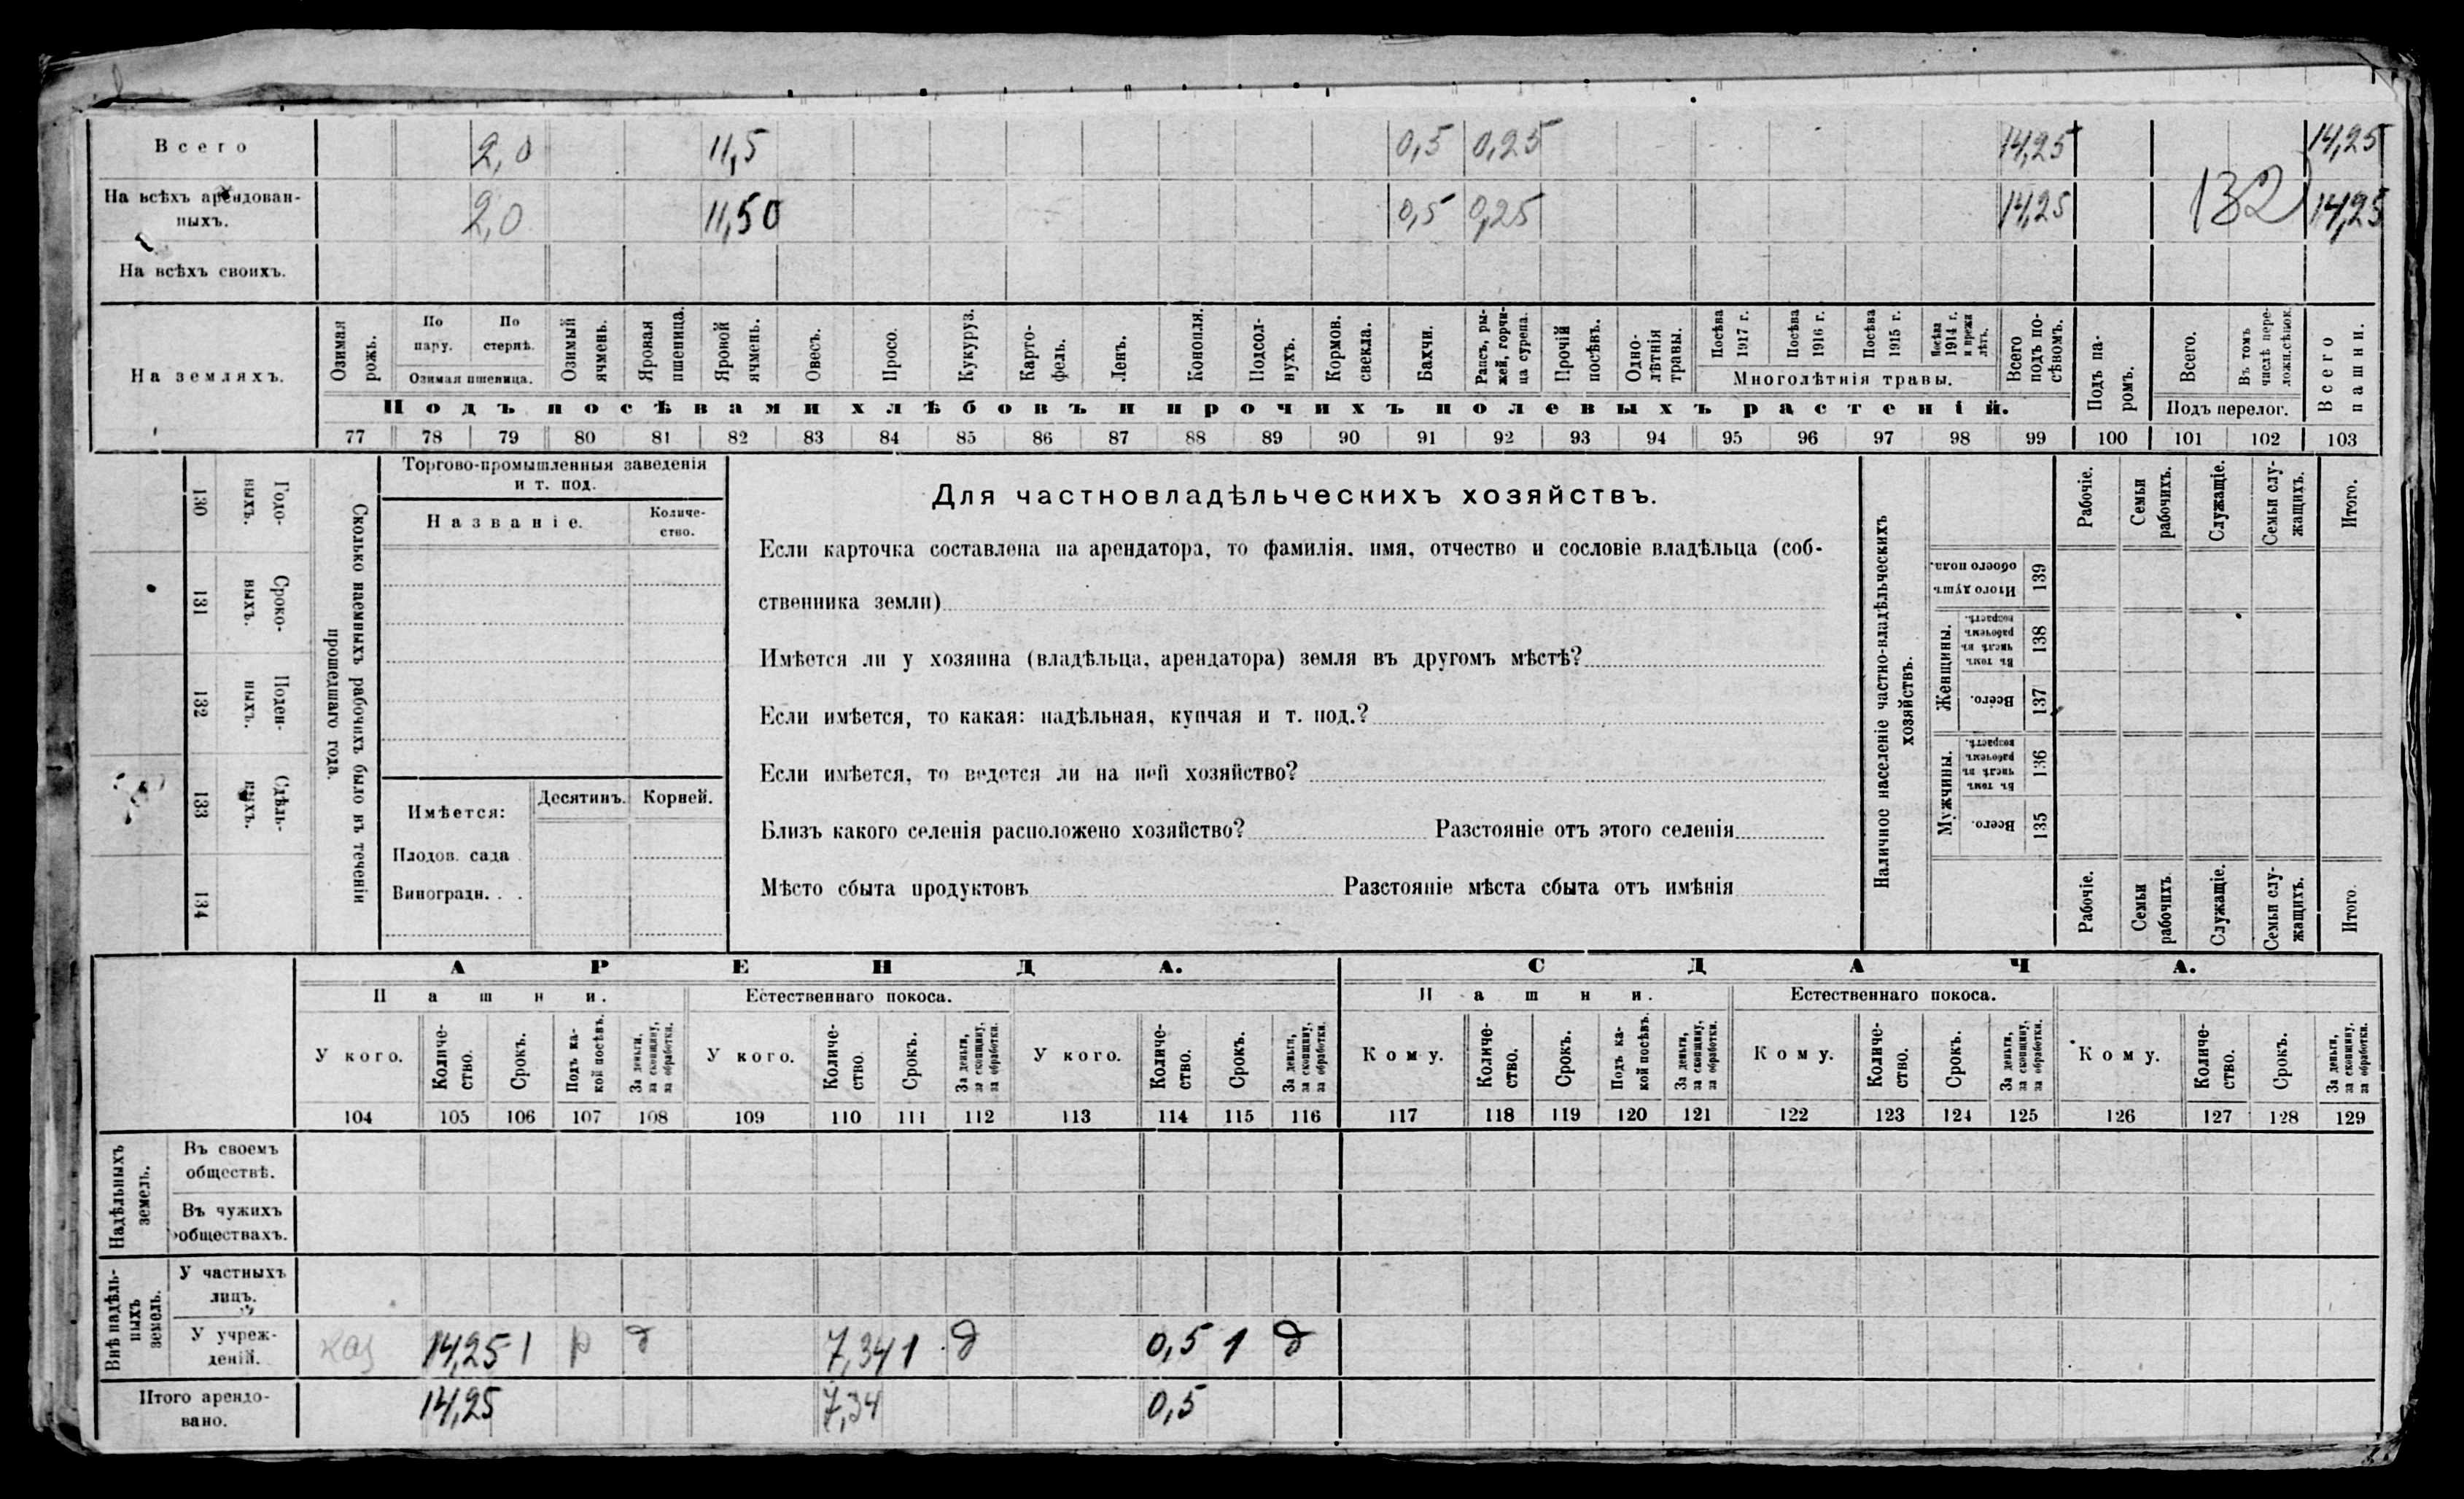 Всего 2,0 11,5 0,5 0,25 14,25 14,25
На всѣхъ арендован-
ныхъ. 2,0 11,50 0,5 0,25 14,25 132 14,25
На всѣхъ своихъ.
На земляхъ.
Озимая рожь.
По пару.
По стернѣ.
Озимая пшеница.
Озимый ячмень.
Яровая пшеница.
Яровой ячмень.
Овесъ.
Просо.
Кукуруз.
Карто-фель.
Ленъ.
Конопля.
Подсол-нухъ.
Кормов. свекла.
Бахчи.
Рапсъ, ры-жей, горчи-ца сурепа.
Прочій посѣвъ.
Одно-лѣтнія травы.
Посѣва 1917 г.
Посѣва 1916 г.
Посѣва 1915 г.
Посѣва 1914 г. и прежн лѣтъ.
Многолѣтнія травы.
Всего подъ по-сѣвомъ.
Подъ па-ромъ.
Всего.
Въ томъ числѣ пере-ложн.сѣнок.
Подъ перелог.
Всего пашни.
Подъ посѣвами хлѣбовъ и прочихъ полевыхъ растеній.
77 78 79 80 81 82 83 84 85 86 87 88 89 90 91 92 93 94 95 96 97 98 99 100 101 102 103
Годо-ныхъ. 130
Сроко-ныхъ. 131
Поден-ныхъ. 132
Сдѣль-ныхъ. 133
134
Сколько наемныхъ рабочихъ было въ теченіи
прошедшаго года.
Торгово-промышленныя заведенія
и т. под.
Названіе.
Количе-
ство.
Имѣется:
Десятинъ. Корней.
Плодов. сада
Виноградн. . .
Для частновладѣльческихъ хозяйствъ.
Если карточка составлена на арендатора, то фамилія, имя, отчество и сословіе владѣльца (соб-
ственника земли)
Имѣется ли у хозяина (владѣльца, арендатора) земля въ другомъ мѣстѣ?
Если имѣется, то какая: надѣльная, купчая и т. под.?
Если имѣется, то ведется ли на ней хозяйство?
Близъ какого селенія расположено хозяйство? Разстояніе отъ этого селенія
Мѣсто сбыта продуктовъ Разстояніе мѣста сбыта отъ имѣнія
Наличное населеніе частно-владѣльческихъ
хозяйствъ.
Рабочіе.
Семьи рабочихъ.
Служащіе.
Семьи слу-жащихъ.
Итого.
Итого душъ обоего пола. 139
Женщины.
Въ томъ числѣ въ рабочемъ возрастѣ. 138
Всего. 137
Мужчины.
Въ томъ числѣ въ рабочемъ возрастѣ. 136
Всего. 135
Рабочіе.
Семьи рабочихъ.
Служащіе.
Семьи слу-жащихъ.
Итого
АРЕНДА. СДАЧА.
Пашни. Естественнаго покоса. Пашни. Естественнаго покоса.
У кого.
Количе-ство.
Срокъ.
Подъ ка-кой посѣвъ.
За деньги, за скопщину, за обработки.
У кого.
Количе-ство.
Срокъ.
За деньги, за скопщину, за обработки.
У кого.
Количе-ство.
Срокъ.
За деньги, за скопщину, за обработки.
Кому.
Количе-ство.
Срокъ.
Подъ ка-кой посѣвъ.
За деньги, за скопщину, за обработки.
Кому.
Количе-ство.
Срокъ.
За деньги, за скопщину, за обработки.
Кому.
Количе-ство.
Срокъ.
За деньги, за скопщину, за обработки.
104 105 106 107 108 109 110 111 112 113 114 115 116 117 118 119 120 121 122 123 124 125 126 127 128 129
Надѣльныхъ земель.
Въ своемъ
обществѣ.
Въ чужихъ
обществахъ.
Внѣ надѣль-ныхъ земель.
У частныхъ
лицъ.
У учреж-
деній. каз 14,25 1 р д 7,34 1 д 0,5 1 д
Итого арендо-
вано. 14,25 7,34 0,5